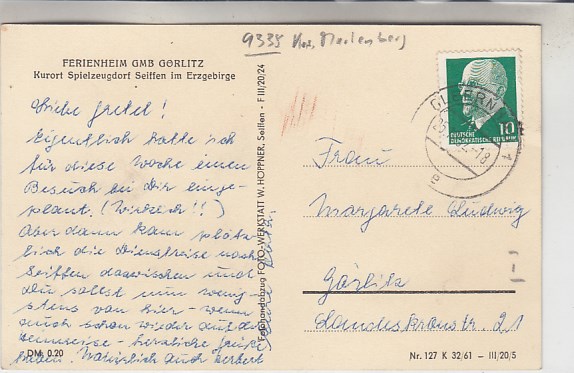 9335 Krs. Marienberg
FERIENHEIM GMB GÖRLITZ
Kurort Spielzeugdorf Seiffen im Erzgebirge
Liebe Gretel!
Eigentlich hatte ich
für diese Woche einen
Besuch bei Dir einge-
plant. (Wirklich!!)
Aber dann kam plötz-
lich die Dienstreise nach
Seiffen dazwischen und
Du sollst nun wenig-
stens von hier - wenn
auch schon wieder auf der
- herzliche Grüße
haben. Natürlich auch Herbert
DM 0.20
Fotohandabzug FOTO-WERKSTATT W. HÖPPNER, Seiffen - F III/20/24
DEUTSCHE
DEMOKRATISCHE REPUBLIK
10
Frau
Margarete Ludwig
Görlitz
Landeskronstr. 21
Nr. 127 K 32/61 - III/20/5